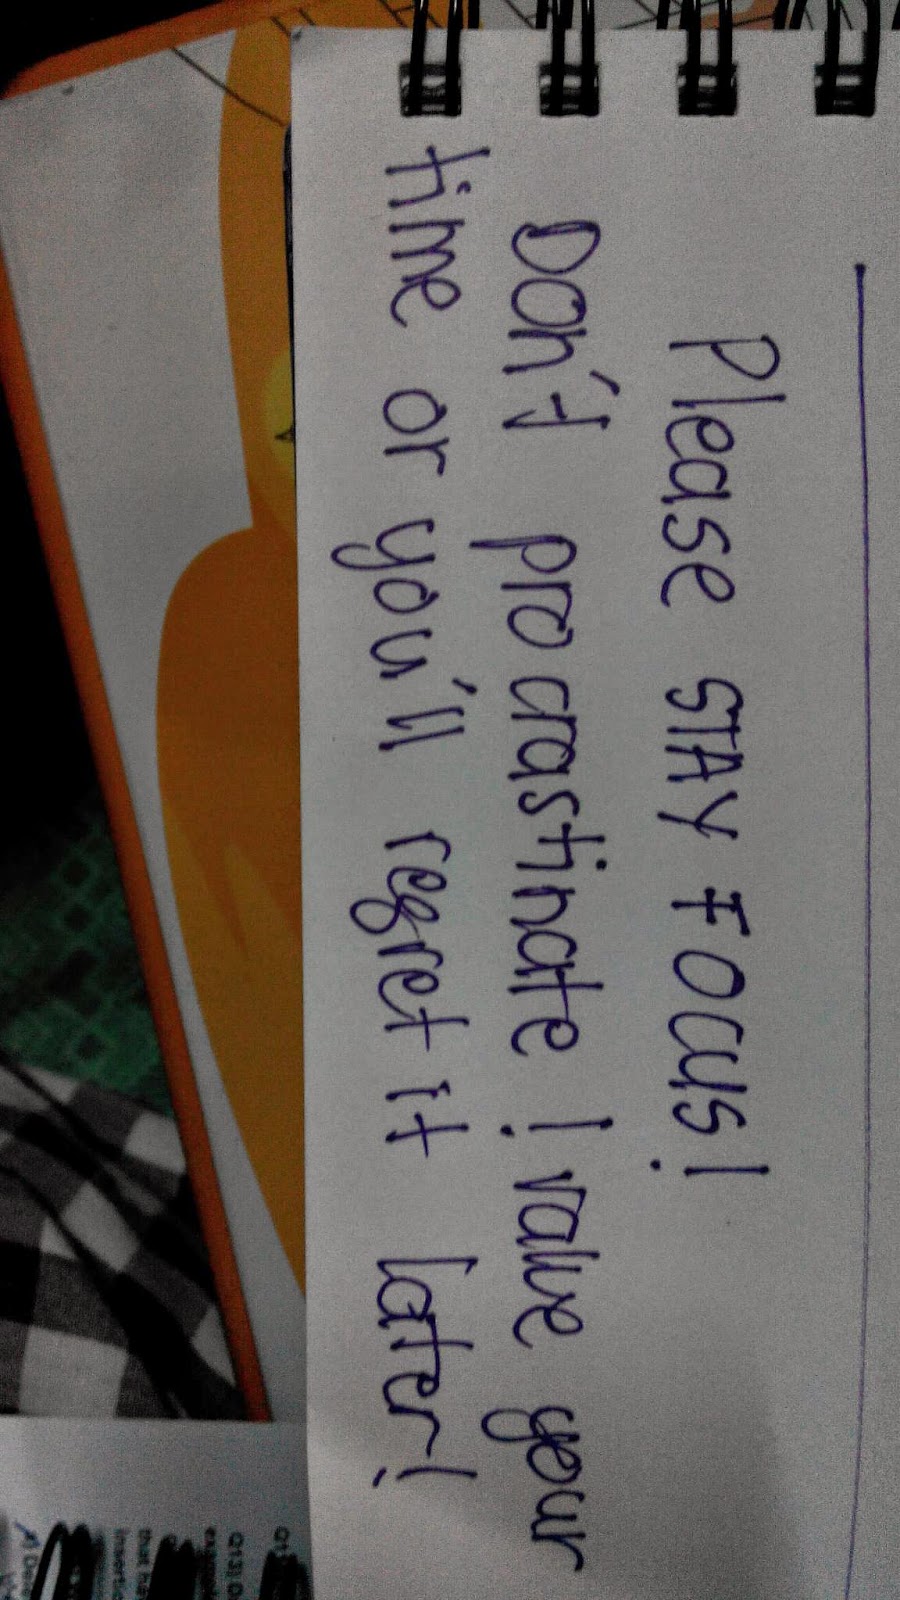 Please STAY FOCUS!
Don't procrastinate! value your
time or you'll regret it later!
Q13) D